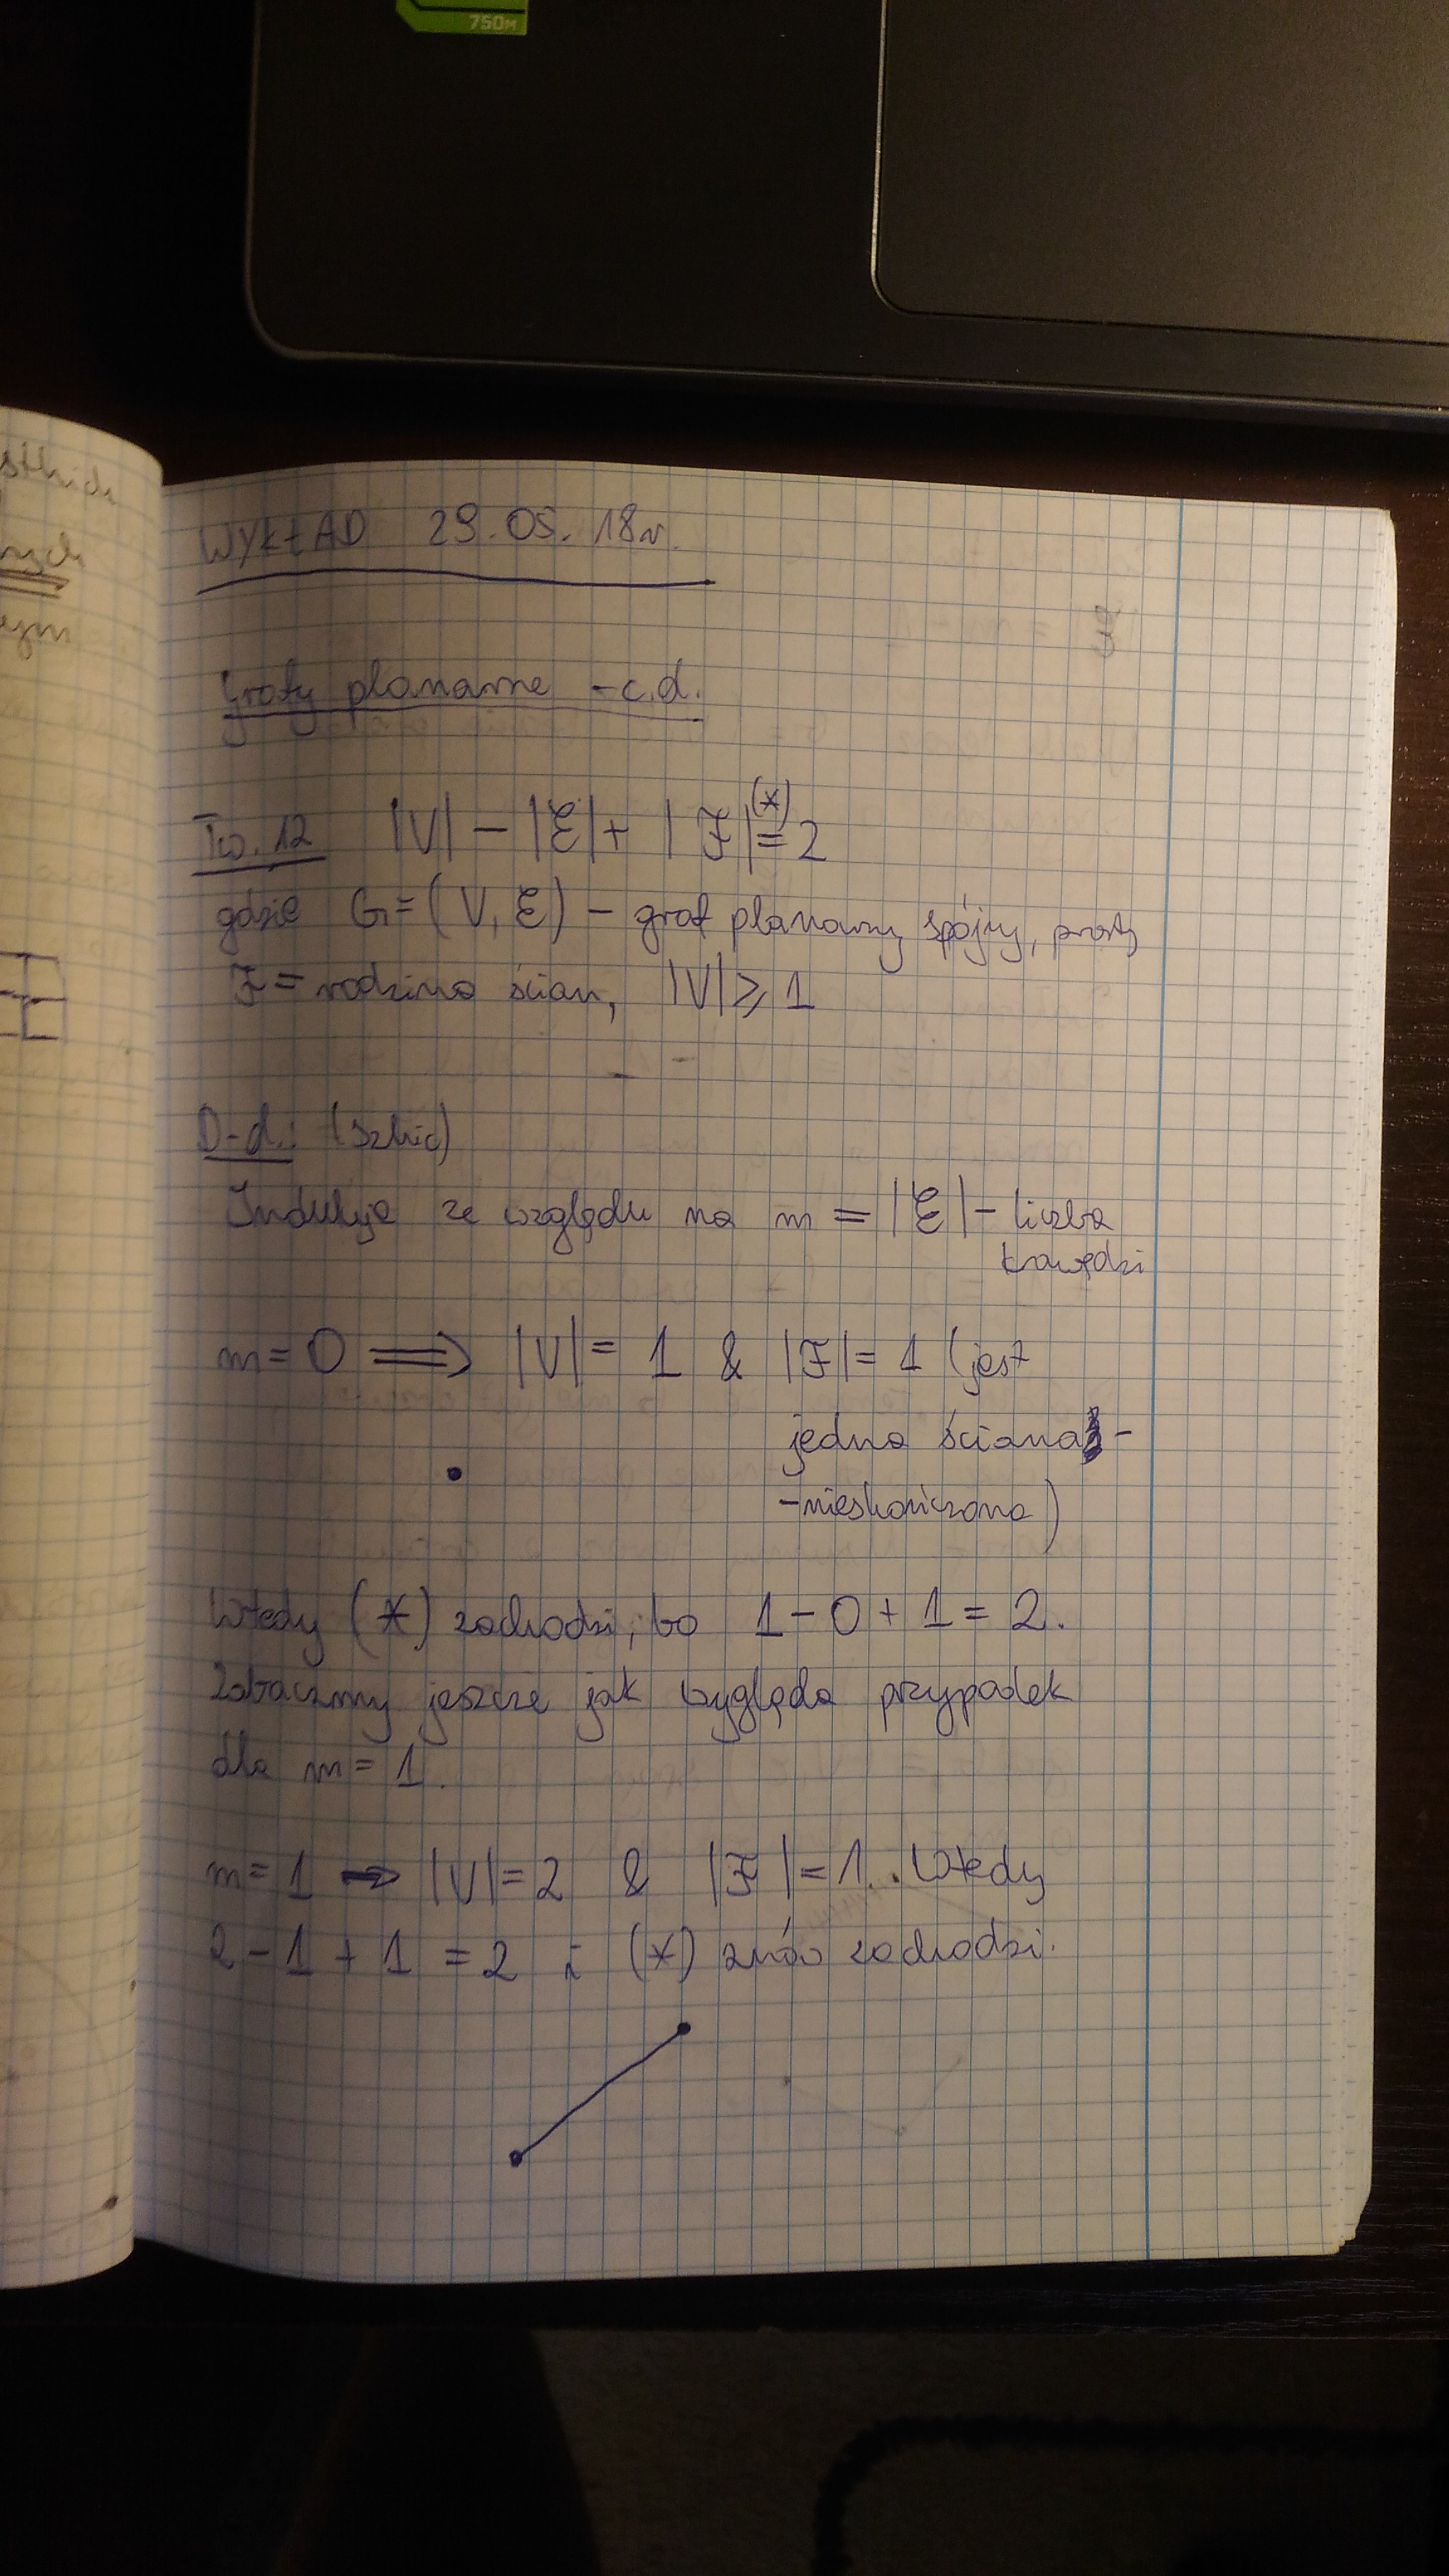 750M
WYKŁAD 29.05.18r.
Grafy planarne - c.d.
Tw. 12 |V| - |E| + |F| (*)= 2
gdzie G = (V, E) - graf planarny spójny, prosty
F = rodzina ścian, |V| ≥ 1
D-d.: (szkic)
Indukcja ze względu na m = |E| - liczba
krawędzi
m = 0 ⟹ |V| = 1 & |F| = 1 (jest
jedna ściana -
- nieskończona)
Wtedy (*) zachodzi, bo 1 - 0 + 1 = 2.
Zobaczmy jeszcze jak wygląda przypadek
dla m = 1.
m = 1 ⟹ |V| = 2 & |F| = 1. Wtedy
2 - 1 + 1 = 2 i (*) znów zachodzi.